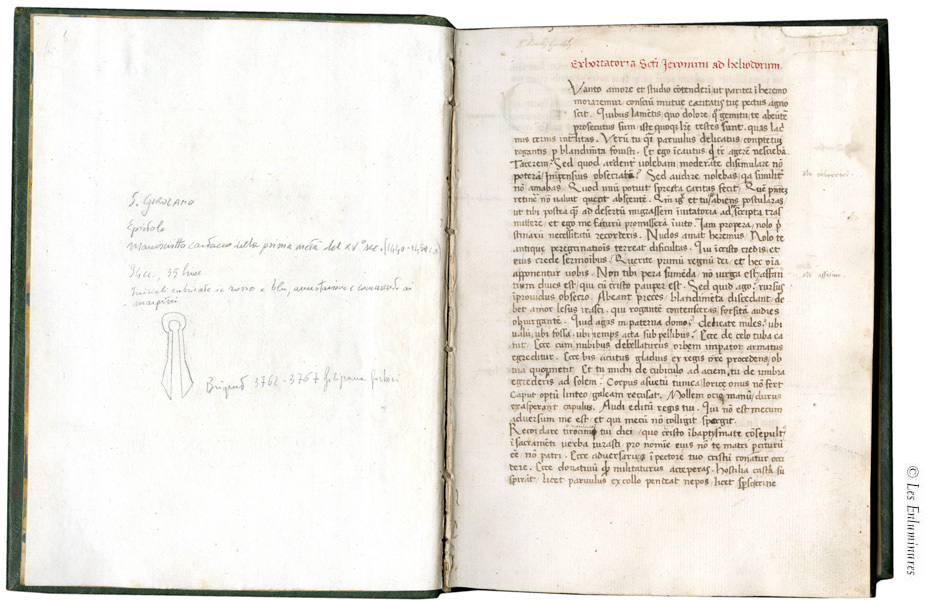 S. GEROLAMO
Epistole
manoscritto cartaceo della prima metà del XV° sec. (1440-1450 c.a)
94 cc., 35 linee
Iniziali rubricate in rosso e blu, annotazioni e commenti ai
margini
Briquet 3762-3767 filigrana forbici
Exhortatoria Scti Jeronimi ad heliodorum.
Vanto amore et studio cōtenderī ut pariter ī heremo
moraremur consciū mutue caritatis tue pectus agno
scit. Quibus lamētis quo dolore q̄ gemitu te abeūtē
prosecutus sum iste quoqȝ lr̄e testes sunt. quas lac
mis cernis inter litas. Verū tu q̄si parvulus delicatus contēptū
rogantis p blandimta fovisti. Et ego īcautus qd tc̄ agerē nesciebā
Tacerem? Sed quod ardent volebam moderate disimulare nō
poterā. Impensius obsecrarē? Sed audire nolebas. qa similit
nō amabas. Quod unū potuit spreta caritas fecit.
ut tibi postea q̄ ad desertū migrassem īvitatoria ad scripta tras
mitterē. et ego me facturū promisserā īvito. Jam propera. nolo p
stinarū necessitatū recorderis. Nudos amat heremus. Nolo te
antique peregrinationis terreat dificultas. Qui ī cristo credis et
eius crede sermoibus. Querite primū regnū dei. et hec oīa
apponentur vobis. Non tibi pera sumēda. nō virga est. affatī
tum dives est. qui cū cristo pauper est. Sed quid ago? rursus
īprovidus obsecro. Abeant preces. blandimēta discedant. de
bet amor lesus irasci. qui rogantē contenseras forsitā audies
obiurgantē. Quid agis in paterna domo? delicate miles? ubi
valū. ubi fossa. ubi iemps acta sub pellibus? Ecce de celo tuba ca
nit. Ecce cum nubibus debellaturus orbem impator armatus
egreditur. Ecce bis acutus gladius ex regis ore procedens. ob
via queqȝ metit. Et tu michi de cubiculo ad aciem. tu de umbra
egrederis ad solem? Corpus asuetū tunica lorice onus nō fert
Caput optū linteo galeam recusat. Mollem otio manū. durus
exasperant capulus. Audi edictū regis tui. Qui nō est mecum
adversum me est. et qui mecū nō colligit spargit.
Recordare tirocinii tui diei. quo cristo ī baptismate cōsepult'
ī sacramēti verba iurasti. pro nomine eius nō te matri perciturū
cē nō patri. Ecce adversarius ī pectore tuo cristū conatur occi
dere. Ecce donativū qd militaturus acceperas. hostilia castra su
spirāt. licet parvulus ex collo pendeat nepos. licet
© Les Enluminures